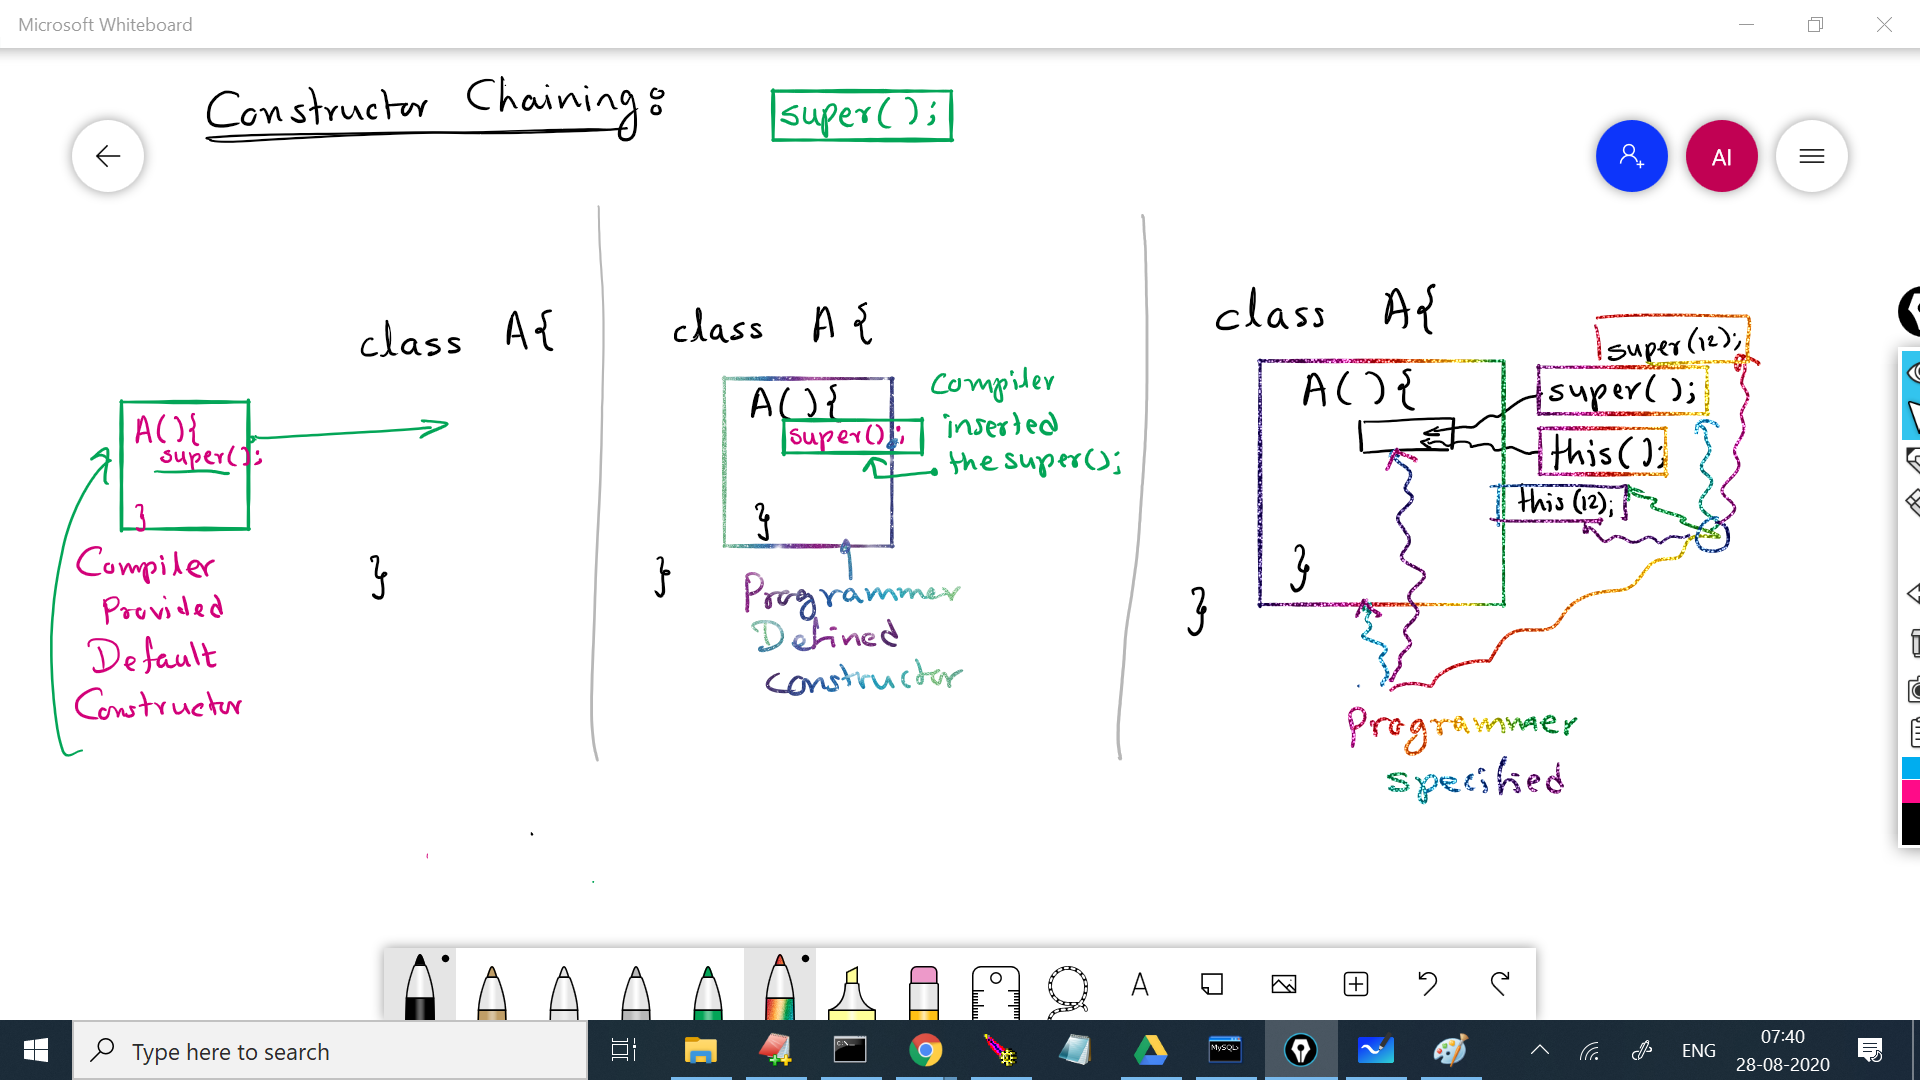 Microsoft Whiteboard
Constructor Chaining:
super();
AI
class A{
A(){
super();
}
}
Compiler
Provided
Default
Constructor
class A{
A(){
super();
}
}
Compiler
inserted
the super();
Programmer
Defined
constructor
class A{
A(){
}
}
super(12);
super();
this();
this(12);
Programmer
specified
A
Type here to search
MySQL
ENG
07:40
28-08-2020